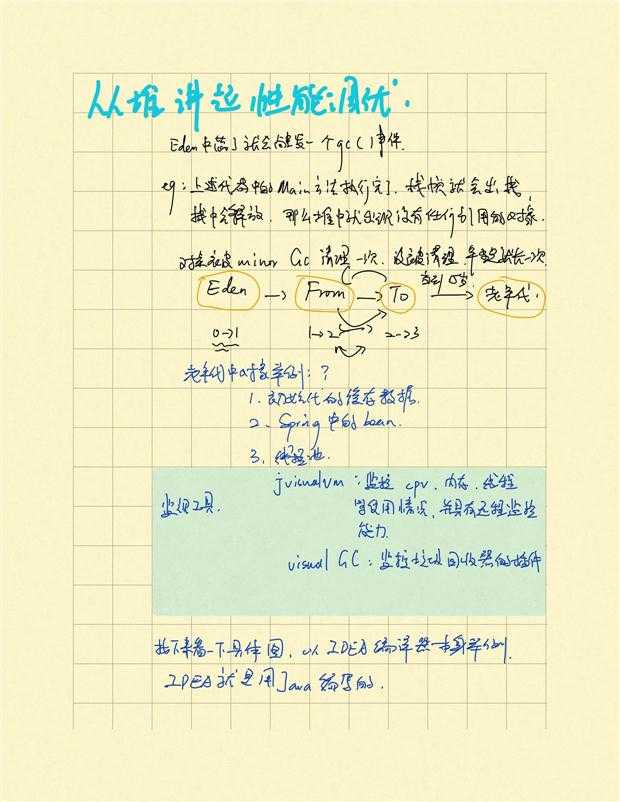 从堆讲起性能调优.
Eden中满了就会触发一个gc()事件.
eg:上述代码中的Main方法执行完了,栈帧就会出栈,
栈中会释放,那么堆中就出现没有任何引用的对象.
对象被minor GC 清理一次,没被清理,年龄就长一次
Eden → From → To 直到15岁 → 老年代.
0→1 1→2 2→3
老年代中对象举例:?
1. 初始化的缓存数据.
2. Spring 中的bean.
3. 线程池.
jvisualvm:监控 cpu、内存、线程
监视工具. 等使用情况,并具有远程监控
能力.
visual GC:监控垃圾回收器的插件
接下来看一下具体图,以 IDEA 编译器本身举例.
IDEA 就是用Java 编写的.